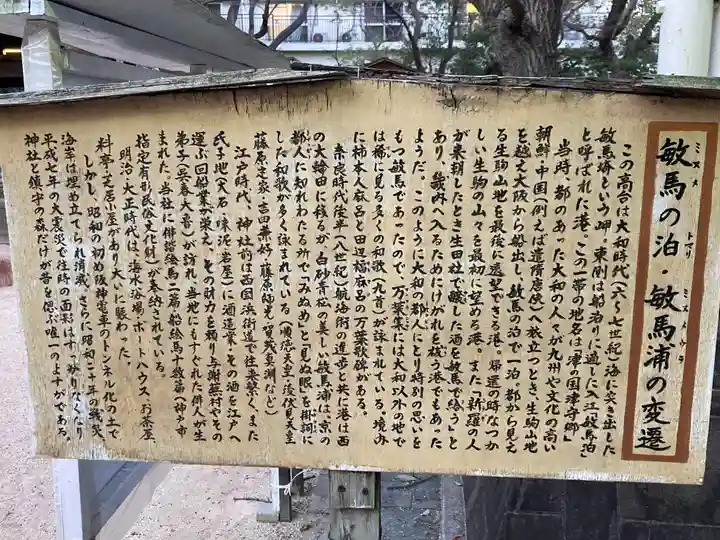 敏馬の泊・敏馬浦の変遷
ミヌメ
トマリ
ミヌメノウラ
この高台は大和時代(六〜七世紀)海に突き出した
敏馬埼という岬。東側は船泊りに適した入江、敏馬泊
と呼ばれた港。この一帯の地名は「津の国津守郷」
当時、都のあった大和の人々が九州や文化の高い
朝鮮・中国(例えば遣隋唐使)へ旅立つとき、生駒山地
を越え大阪から船出し、敏馬の泊で一泊。都から見え
る生駒山地を最後に遠望できる港。帰還の時なつか
しい生駒の山々を最初に望める港。また「新羅の人
が来朝したとき生田社で醸した酒を敏馬で給う」と
あり、畿内へ入るためにけがれを祓う港でもあった
ようだ。このように大和の都人にとり特別の思いを
もつ敏馬であったので、万葉集には大和以外の地で
は稀に見る多くの和歌(九首)が詠まれている。境内
に柿本人麻呂と田辺福麻呂の万葉歌碑がある。
奈良時代後半(八世紀)航海術の進歩と共に港は西
の大輪田に移るが、白砂青松の美しい敏馬浦は、京の
都人に知れわたる所で「みぬめ」と「見ぬ眼」を掛詞に
した和歌が多く詠まれている。(順徳天皇・後伏見天皇
藤原定家・吉田兼好・藤原師光・賀茂真淵など)
江戸時代、神社前は西国浜街道で往来繁く、また
氏子地(大石・味泥・岩屋)に酒造業、その酒を江戸へ
運ぶ回船業が栄え、その財力を頼り与謝蕪村やその
弟子(呉春・大魯)が訪れ、当地にもすぐれた俳人が生
まれた。当社に俳諧絵馬二篇・船絵馬十数篇(神戸市
指定有形民俗文化財)が奉納されている。
明治・大正時代は、海水浴場・ボートハウス・お茶屋・
料亭・芝居小屋があり大いに賑わった。
しかし、昭和の初め阪神電車のトンネル化の土で
海岸は埋め立てられ消滅。さらに昭和二十年の戦災、
平成七年の大震災で往時の面影はすっかりなくなり
神社と鎮守の森だけが昔を偲ぶ唯一のよすがである。